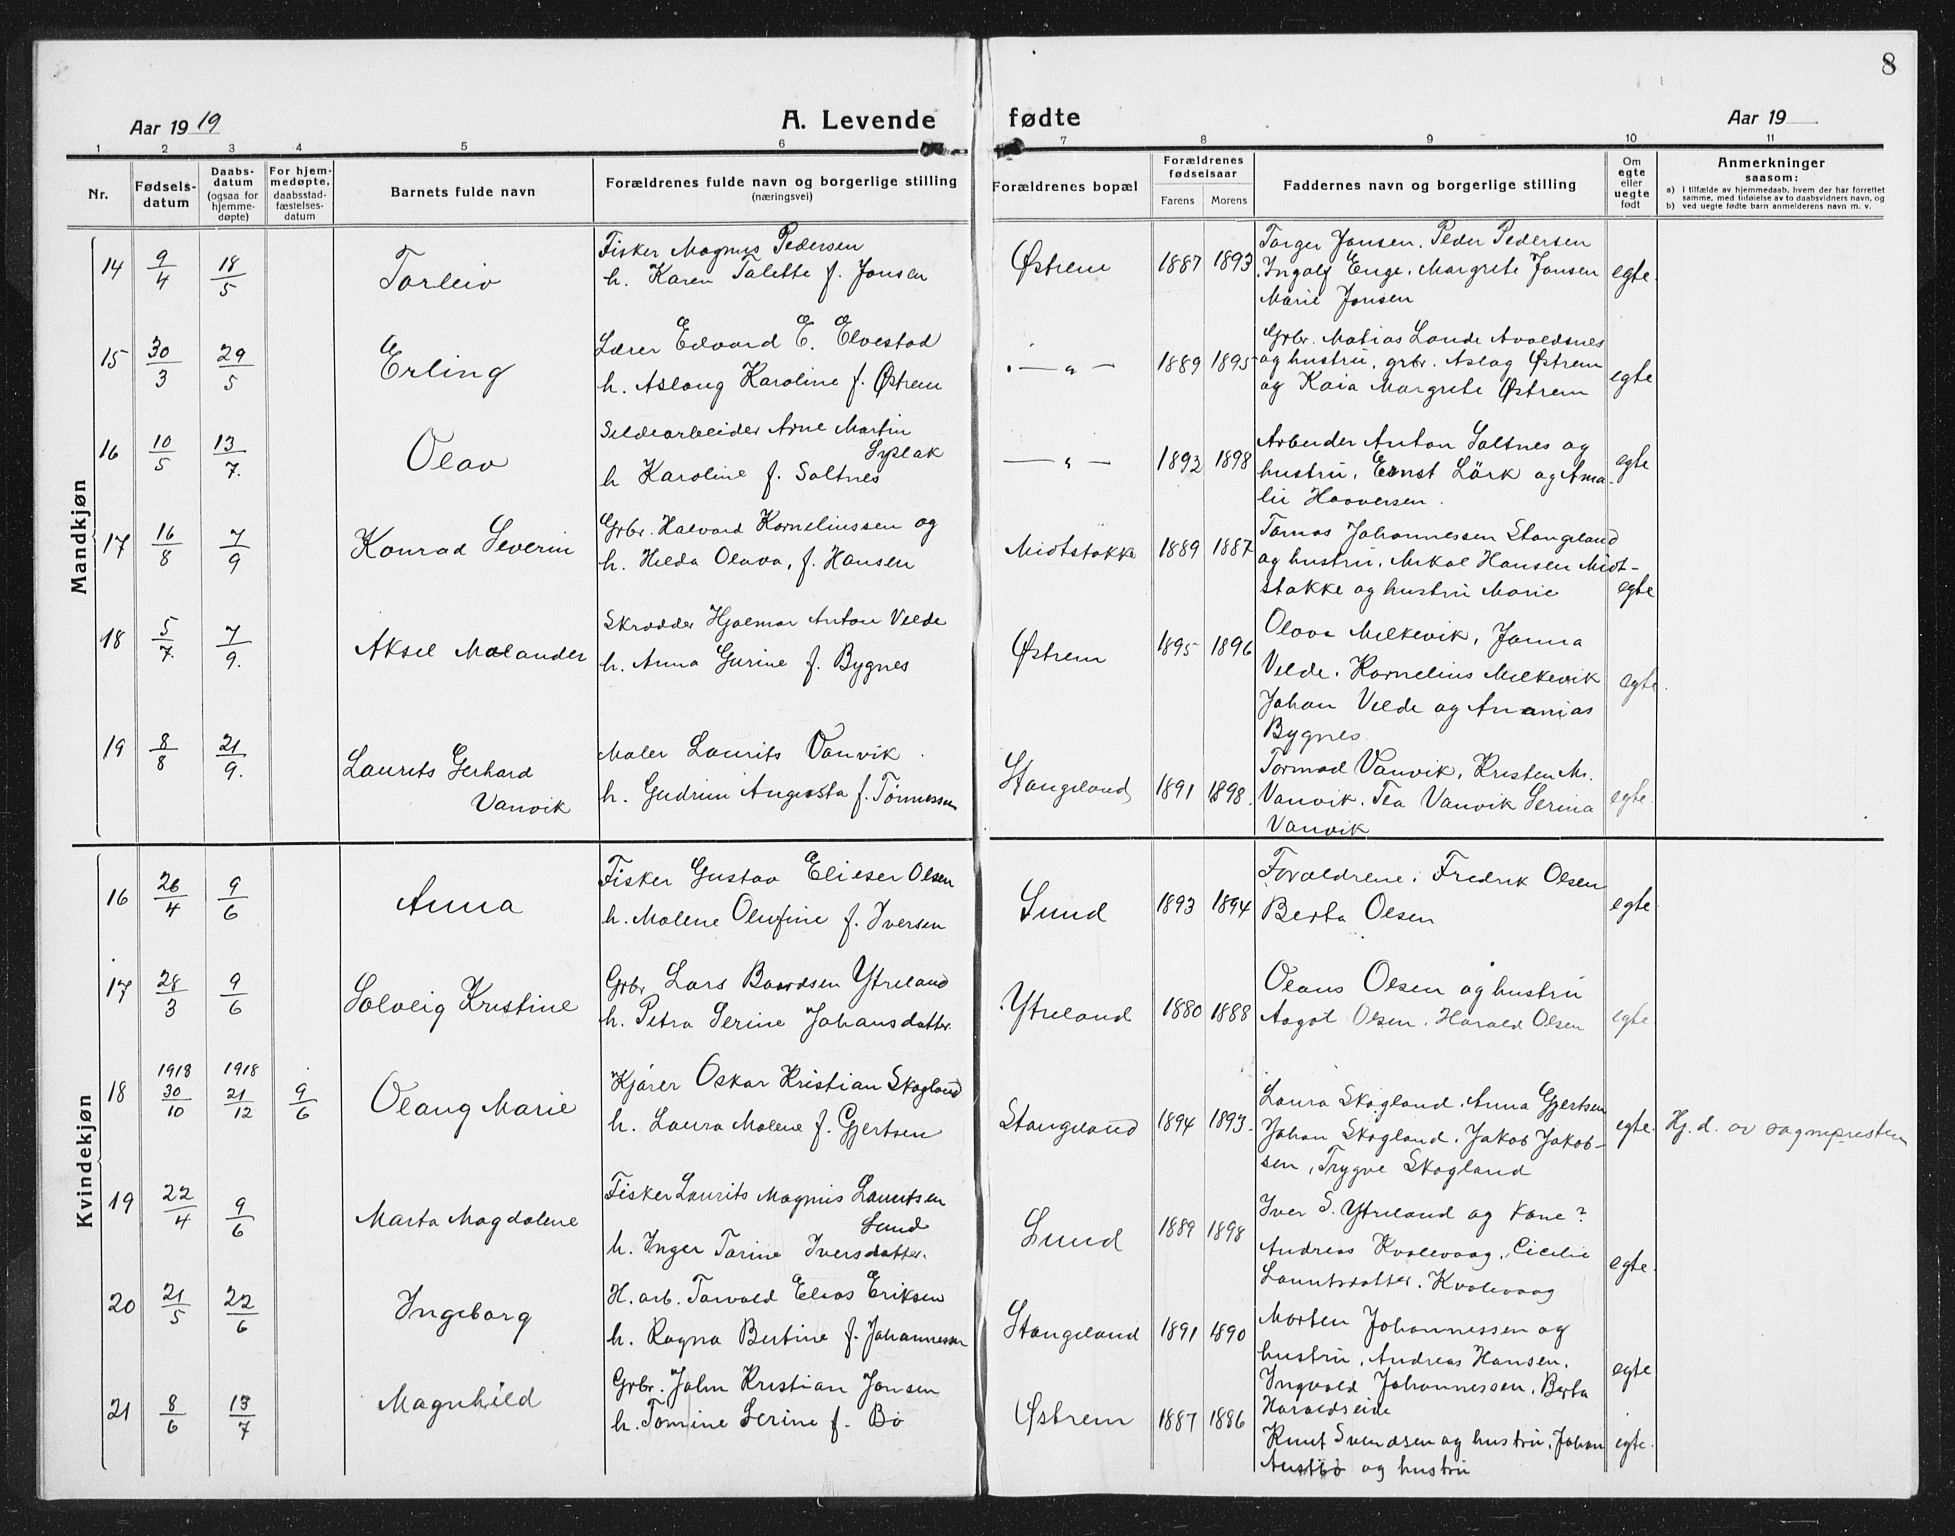 8
Aar 1919
A. Levende fødte
Aar 19
1 2 3 4 5 6 7 8 9 10 11
Nr.
Fødsels-
datum
Daabs-
datum
(ogsaa for
hjemme-
døpte)
For hjem-
medøpte,
daabsstad-
fæstelses-
datum
Barnets fulde navn
Forældrenes fulde navn og borgerlige stilling
(næringsvei)
Forældrenes bopæl
Forældrenes
fødselsaar
Farens Morens
Faddernes navn og borgerlige stilling
Om
egte
eller
uegte
født
Anmerkninger
saasom:
a) I tilfælde av hjemmedaab, hvem der har forrettet
samme, med tilføielse av to daabsvidners navn, og
b) ved uegte fødte barn anmelderens navn m. v.
Mandkjøn
14 9/4 18/5 Torleiv
Fisker Magnus Pedersen
h. Karen Talette f. Jonsen
Østrem 1887 1893
Torger Jonsen. Peder Pedersen
Ingolf Enge. Margrete Jonsen
Marie Jonsen
egte.
15 30/3 29/5 Erling
Lærer Edvard E. Elvestad
h. Aslaug Karoline f. Østrem
— " — 1889 1895
Grbr. Matias Lande Avaldsnes
og hustru, grbr. Aslag Østrem
og Kaia Margrete Østrem
egte
16 10/5 13/7. Olav
Sildearbeider Arne Martin
Syslak
h Karoline f. Saltnes
— " — 1892 1898
Arbeider Anton Saltnes og
hustru, Ernst Lörk og Ama-
lie Haaversen.
egte
17 16/8 7/9 Konrad Severin
Grbr. Halvard Korneliussen og
h. Hilda Olava, f. Hansen
Midtstokke 1889 1887
Tomas Johannessen Stangeland
og hustru, Mikal Hansen Midt-
stokke og hustru Marie
egte
18 5/7. 7/9. Aksel Malander
Skrædder Hjalmar Anton Velde
h. Anna Gurine f. Bygnes
Østrem 1895 1896
Olava Milkevik, Janna
Velde. Kornelius Milkevik
Johan Velde og Ananias
Bygnes
egte.
19 8/8 21/9. Laurits Gerhard
Vanvik
Maler Laurits Vanvik.
h. Gudrun Augusta f. Tønnessen
Stangeland 1891 1898.
Tormod Vanvik, Kristen M.
Vanvik. Tea Vanvik Serina
Vanvik
egte.
Kvindekjøn
16 26/4 9/6 Anna
Fisker Gustav Elieser Olsen
h. Malene Olufine f. Iversen
Sund 1893 1894
Forældrene. Fredrik Olsen
Berta Olsen
egte.
17 28/3 9/6 Solveig Kristine
Grbr. Lars Baardsen Ytreland
h. Petra Serine Johansdatter.
Ytreland 1880 1888
Olaus Olsen og hustru
Aagot Olsen. Harald Olsen
egte
18 1918 30/10 1918 21/12 9/6 Olaug Marie
Kjører Oskar Kristian Skogland
h. Laura Malene f. Gjertsen
Stangeland 1894 1893.
Laura Skogland. Anna Gjertsen
Johan Skogland. Jakob Jakob-
sen, Trygve Skogland
egte. Hj. d. av sognepresten
19 22/4 9/6 Marta Magdalene
Fisker Laurits Magnus Lauritsen
Sund
h. Inger Tarine Iversdatter.
Sund 1889 1898
Iver S. Ytreland og Kone?
Andreas Kvalevaag, Cicilie
Lauritsdatter. Kvalevaag
egte.
20 21/5 22/6 Ingeborg
H. arb. Torvald Elias Eriksen
h. Ragna Bertine f. Johannessen
Stangeland 1891 1890
Morten Johannessen og
hustru, Andreas Hansen,
Ingvald Johannessen. Berta
Haraldseide
egte
21 8/6 13/7 Magnhild
Grbr. John Kristian Jonsen
h. Tomine Serine f. Bø
Østrem 1887 1886
Knut Svendsen og hustru. Johan
Austbø og hustru
egte.